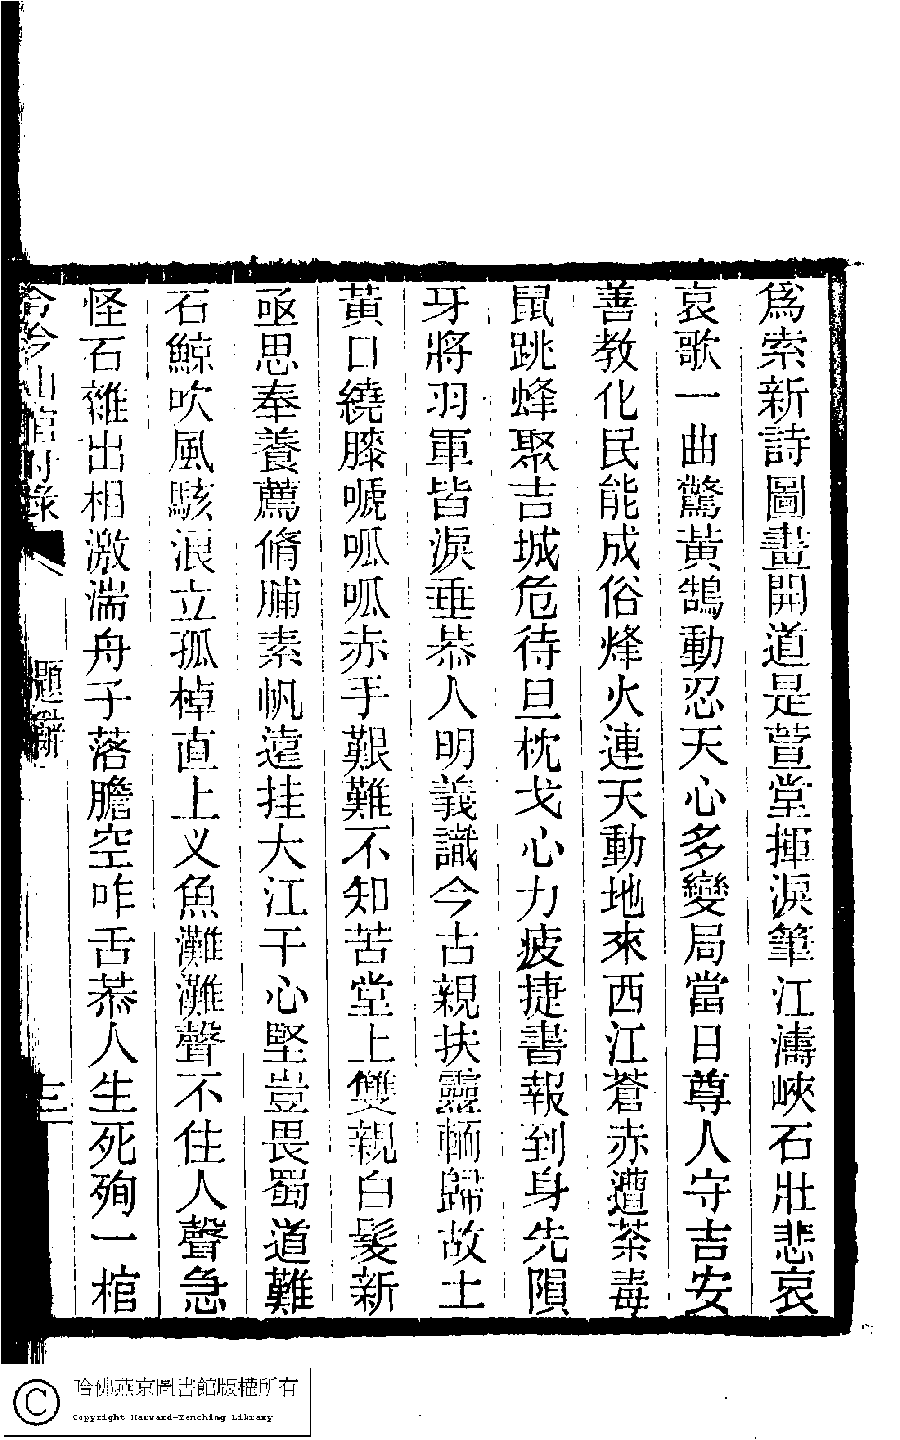 為索新詩圖畫開道是萱堂揮淚筆江濤峽石壯悲哀
哀歌一曲驚黃鵠動忍天心多變局當日尊人守吉安
善教化民能成俗烽火連天動地來西江蒼赤遭荼毒
鼠跳蜂聚吉城危待旦枕戈心力疲捷書報到身先隕
牙將羽軍皆淚垂恭人明義識今古親扶靈輀歸故土
黃口繞膝嗁呱呱赤手艱難不知苦堂上雙親白髮新
亟思奉養薦脩脯素帆遠挂大江干心堅豈畏蜀道難
石鯨吹風駭浪立孤棹直上义魚灘灘聲不住人聲急
怪石雜出相激湍舟子落膽空咋舌恭人生死殉一棺
吟山館附錄
題辭
三
哈佛燕京圖書館版權所有
Copyright Harvard-Yenching Library